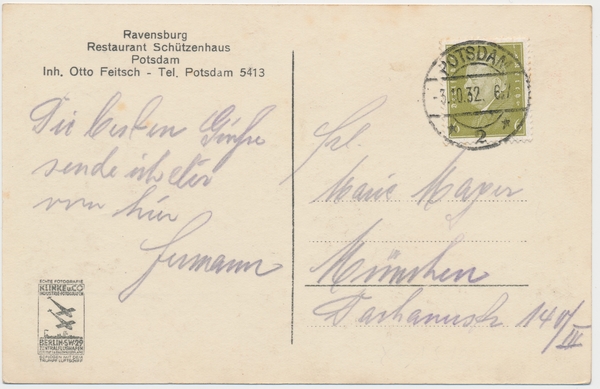 Ravensburg
Restaurant Schützenhaus
Potsdam
Inh. Otto Feitsch - Tel. Potsdam 5413
POTSDAM
-3.10.32. 6-7
2
Die besten Grüße
sende ich dir
von hier
Hermann
Frl.
Marie Mayer
München
Dachauerstr 140/III
ECHTE FOTOGRAFIE
KLINKE u. CO
BERLIN-SW29
ZENTRALFLUGHAFEN